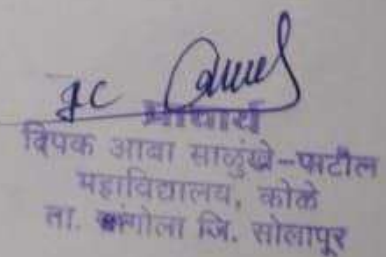 प्राचार्य
दिपक आबा साळुंखे-पाटील
महाविद्यालय, कोळे
ता. सांगोला जि. सोलापूर